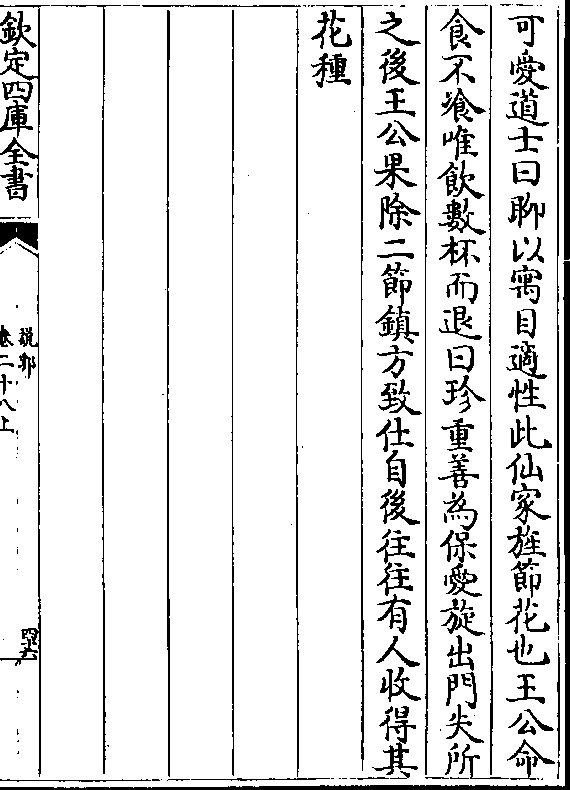 可愛道士曰聊以寓目適性此仙家旌節花也王公命
食不飡唯飲數杯而退曰珍重善為保愛旋出門失所
之後王公果除二節鎮方致仕自後往往有人收得其
花種
欽定四庫全書
說郛
卷二十八上